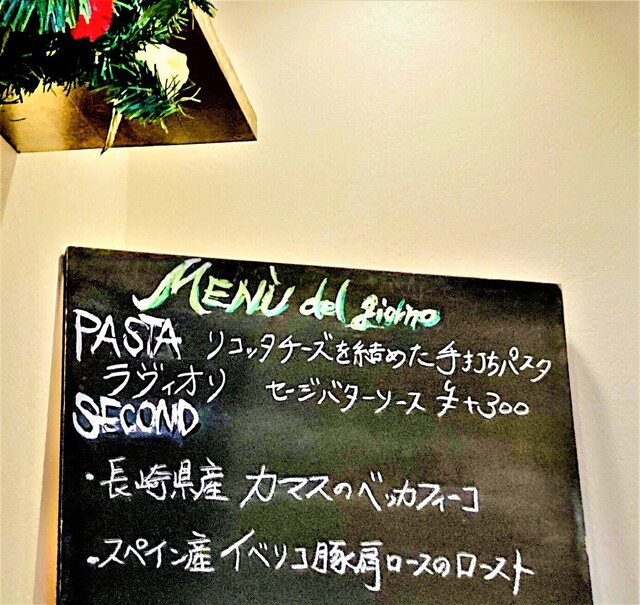 MENÙ del giorno
PASTA リコッタチーズを詰めた手打ちパスタ
ラヴィオリ セージバターソース ¥+300
SECOND
・長崎県産 カマスのベッカフィーコ
・スペイン産 イベリコ豚肩ロースのロースト